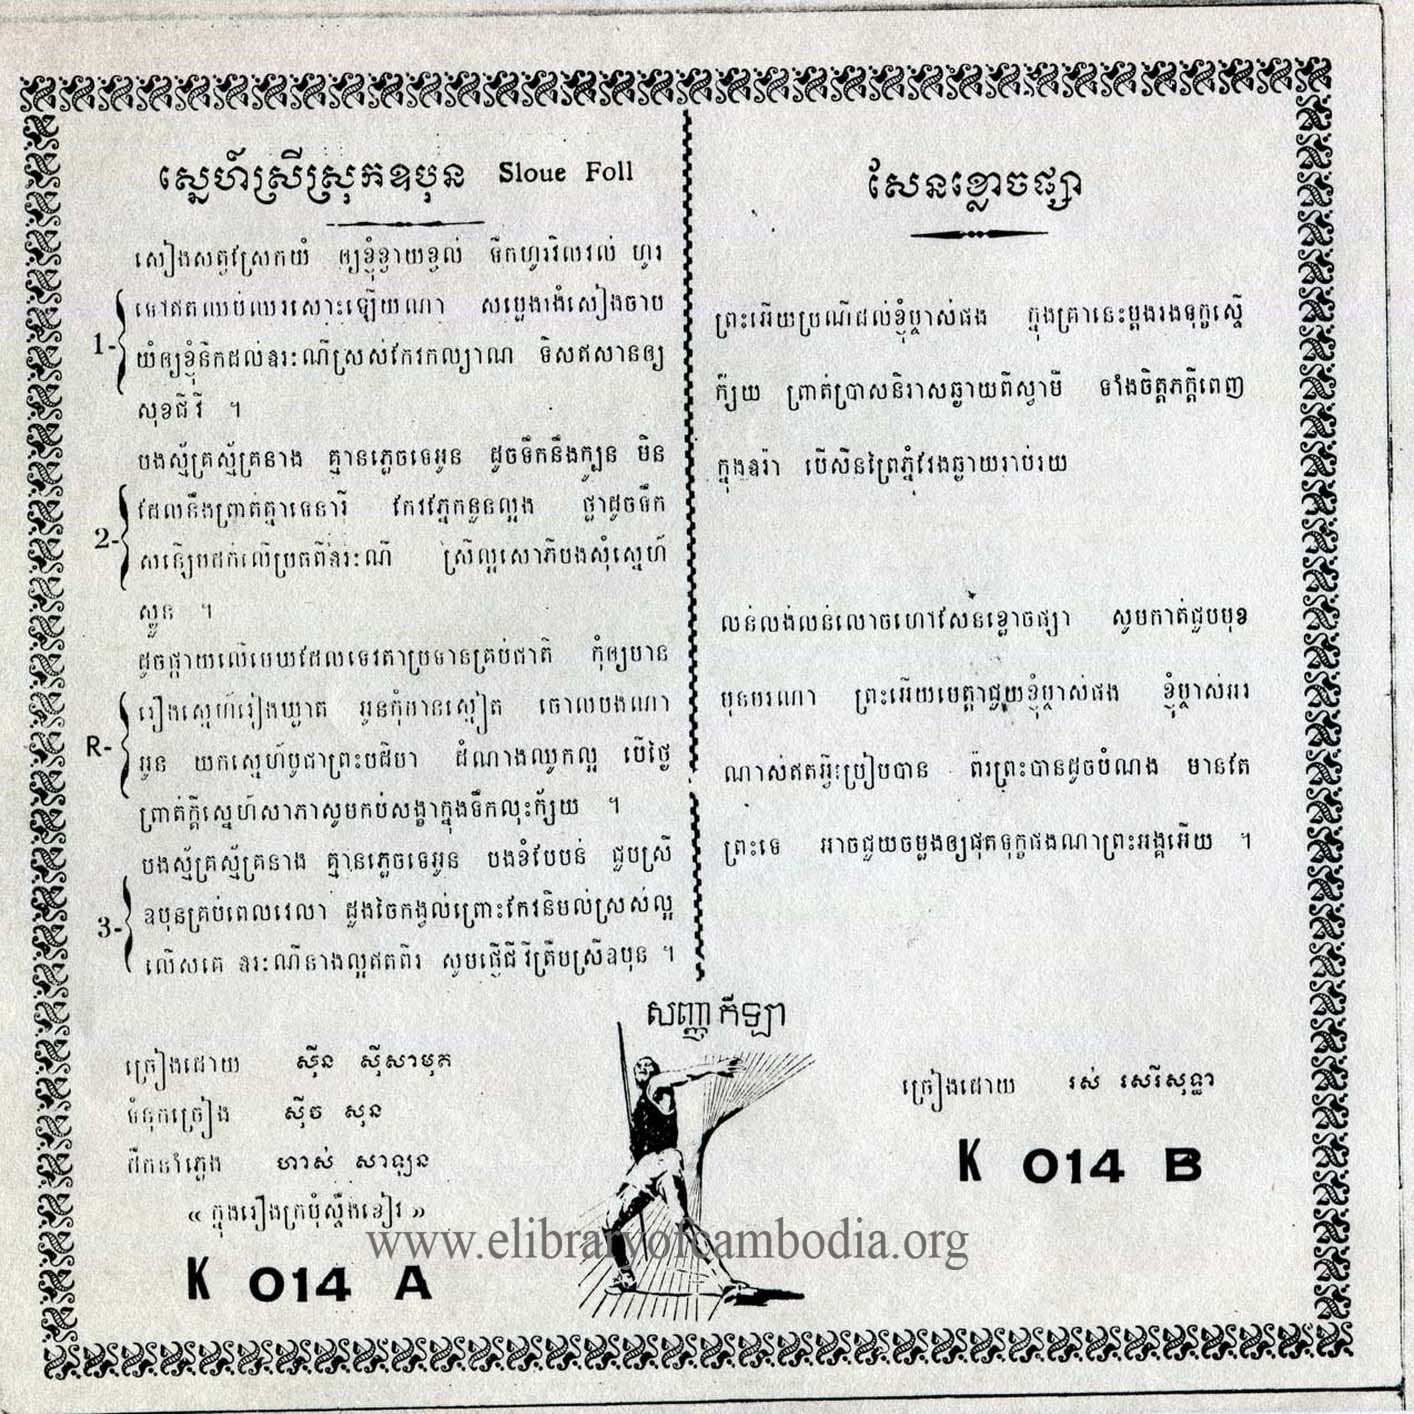 ស្នេហ៍ស្រីស្រុកឧបុន Sloue Foll
សៀងសត្វស្រែកយំ ឲ្យខ្ញុំខ្វាយខ្វល់ ទឹកហូរវិលវល់ ហូរ
1- ទៅឥតឈប់ឈរសោះឡើយណា សម្លេងរងំសៀងចាប
យំឲ្យខ្ញុំនឹកដល់ឧរៈណីស្រស់កែវកល្យាណ ទិសឥសានឲ្យ
សុខជីវី ។
បងស្ម័គ្រស្ម័គ្រនាង គ្មានភ្លេចទេអូន ដូចទឹកនឹងក្បូន មិន
2- ដែលនឹងព្រាត់គ្នាទេនារី កែវភ្នែកនួនល្អង ថ្លាដូចទឹក
សន្សើមដក់លើប្រឹថពីឧរៈណី ស្រីល្អសោភីបងសុំស្នេហ៍
ស្នួន ។
ដូចផ្កាយលើមេឃដែលទេវតាប្រទានគ្រប់ជាតិ កុំឲ្យមាន
R- រឿងស្នេហ៍រៀងឃ្លាត អូនកុំមានស្នៀត ចោលបងណា
អូន យកស្នេហ៍បូជាព្រះបដិមា ដំណាងឈូកល្អ បើថ្ងៃ
ព្រាត់ក្តីស្នេហ៍សាភាសូមកប់សង្ខាក្នុងទឹកលុះក្ស័យ ។
បងស្ម័គ្រស្ម័គ្រនាង គ្មានភ្លេចទេអូន បងខំបែបន់ ជួបស្រី
3- ឧបុនគ្រប់ពេលវេលា ដួងចៃកង្វល់ព្រោះកែវនិមល់ស្រស់ល្អ
លើសគេ ឧរៈណីនាងល្អឥតពីរ សូមផ្ញើជីវីត្រឹមស្រីឧបុន ។
ច្រៀងដោយ ស៊ីន ស៊ីសាមុត
ទំនុកច្រៀង ស៊ីច សុន
ដឹកនាំភ្លេង ហាស់ សាឡន
« ក្នុងរឿងក្រមុំស្ទឹងខៀវ »
K 014 A
សែនខ្លោចផ្សា
ព្រះអើយប្រណីដល់ខ្ញុំម្ចាស់ផង ក្នុងគ្រានេះប្តងរងទុក្ខស្ទើ
ក៏ស្យ ព្រាត់ប្រាសនិរាសឆ្ងាយពីស្វាមី ទាំងចិត្តភក្តីពេញ
ក្នុងឧរ៉ា បើសិនព្រៃភ្នំវែងឆ្ងាយរាប់រយ
លន់លង់លន់លោចហៅសែនខ្លោចផ្សា សូមកាត់ជួបមុខ
មុនមរណា ព្រះអើយមេត្តាជួយខ្ញុំម្ចាស់ផង ខ្ញុំម្ចាស់អរ
ណាស់ឥតអ្វីប្រៀបបាន ពរព្រះបានដូចបំណង មានតែ
ព្រះទេ អាចជួយចម្លងឲ្យផុតទុក្ខផងណាព្រះអង្គអើយ ។
ច្រៀងដោយ រស់ សេរីសុទ្ធា
K 014 B
សញ្ញា កីឡា
www.elibraryofcambodia.org